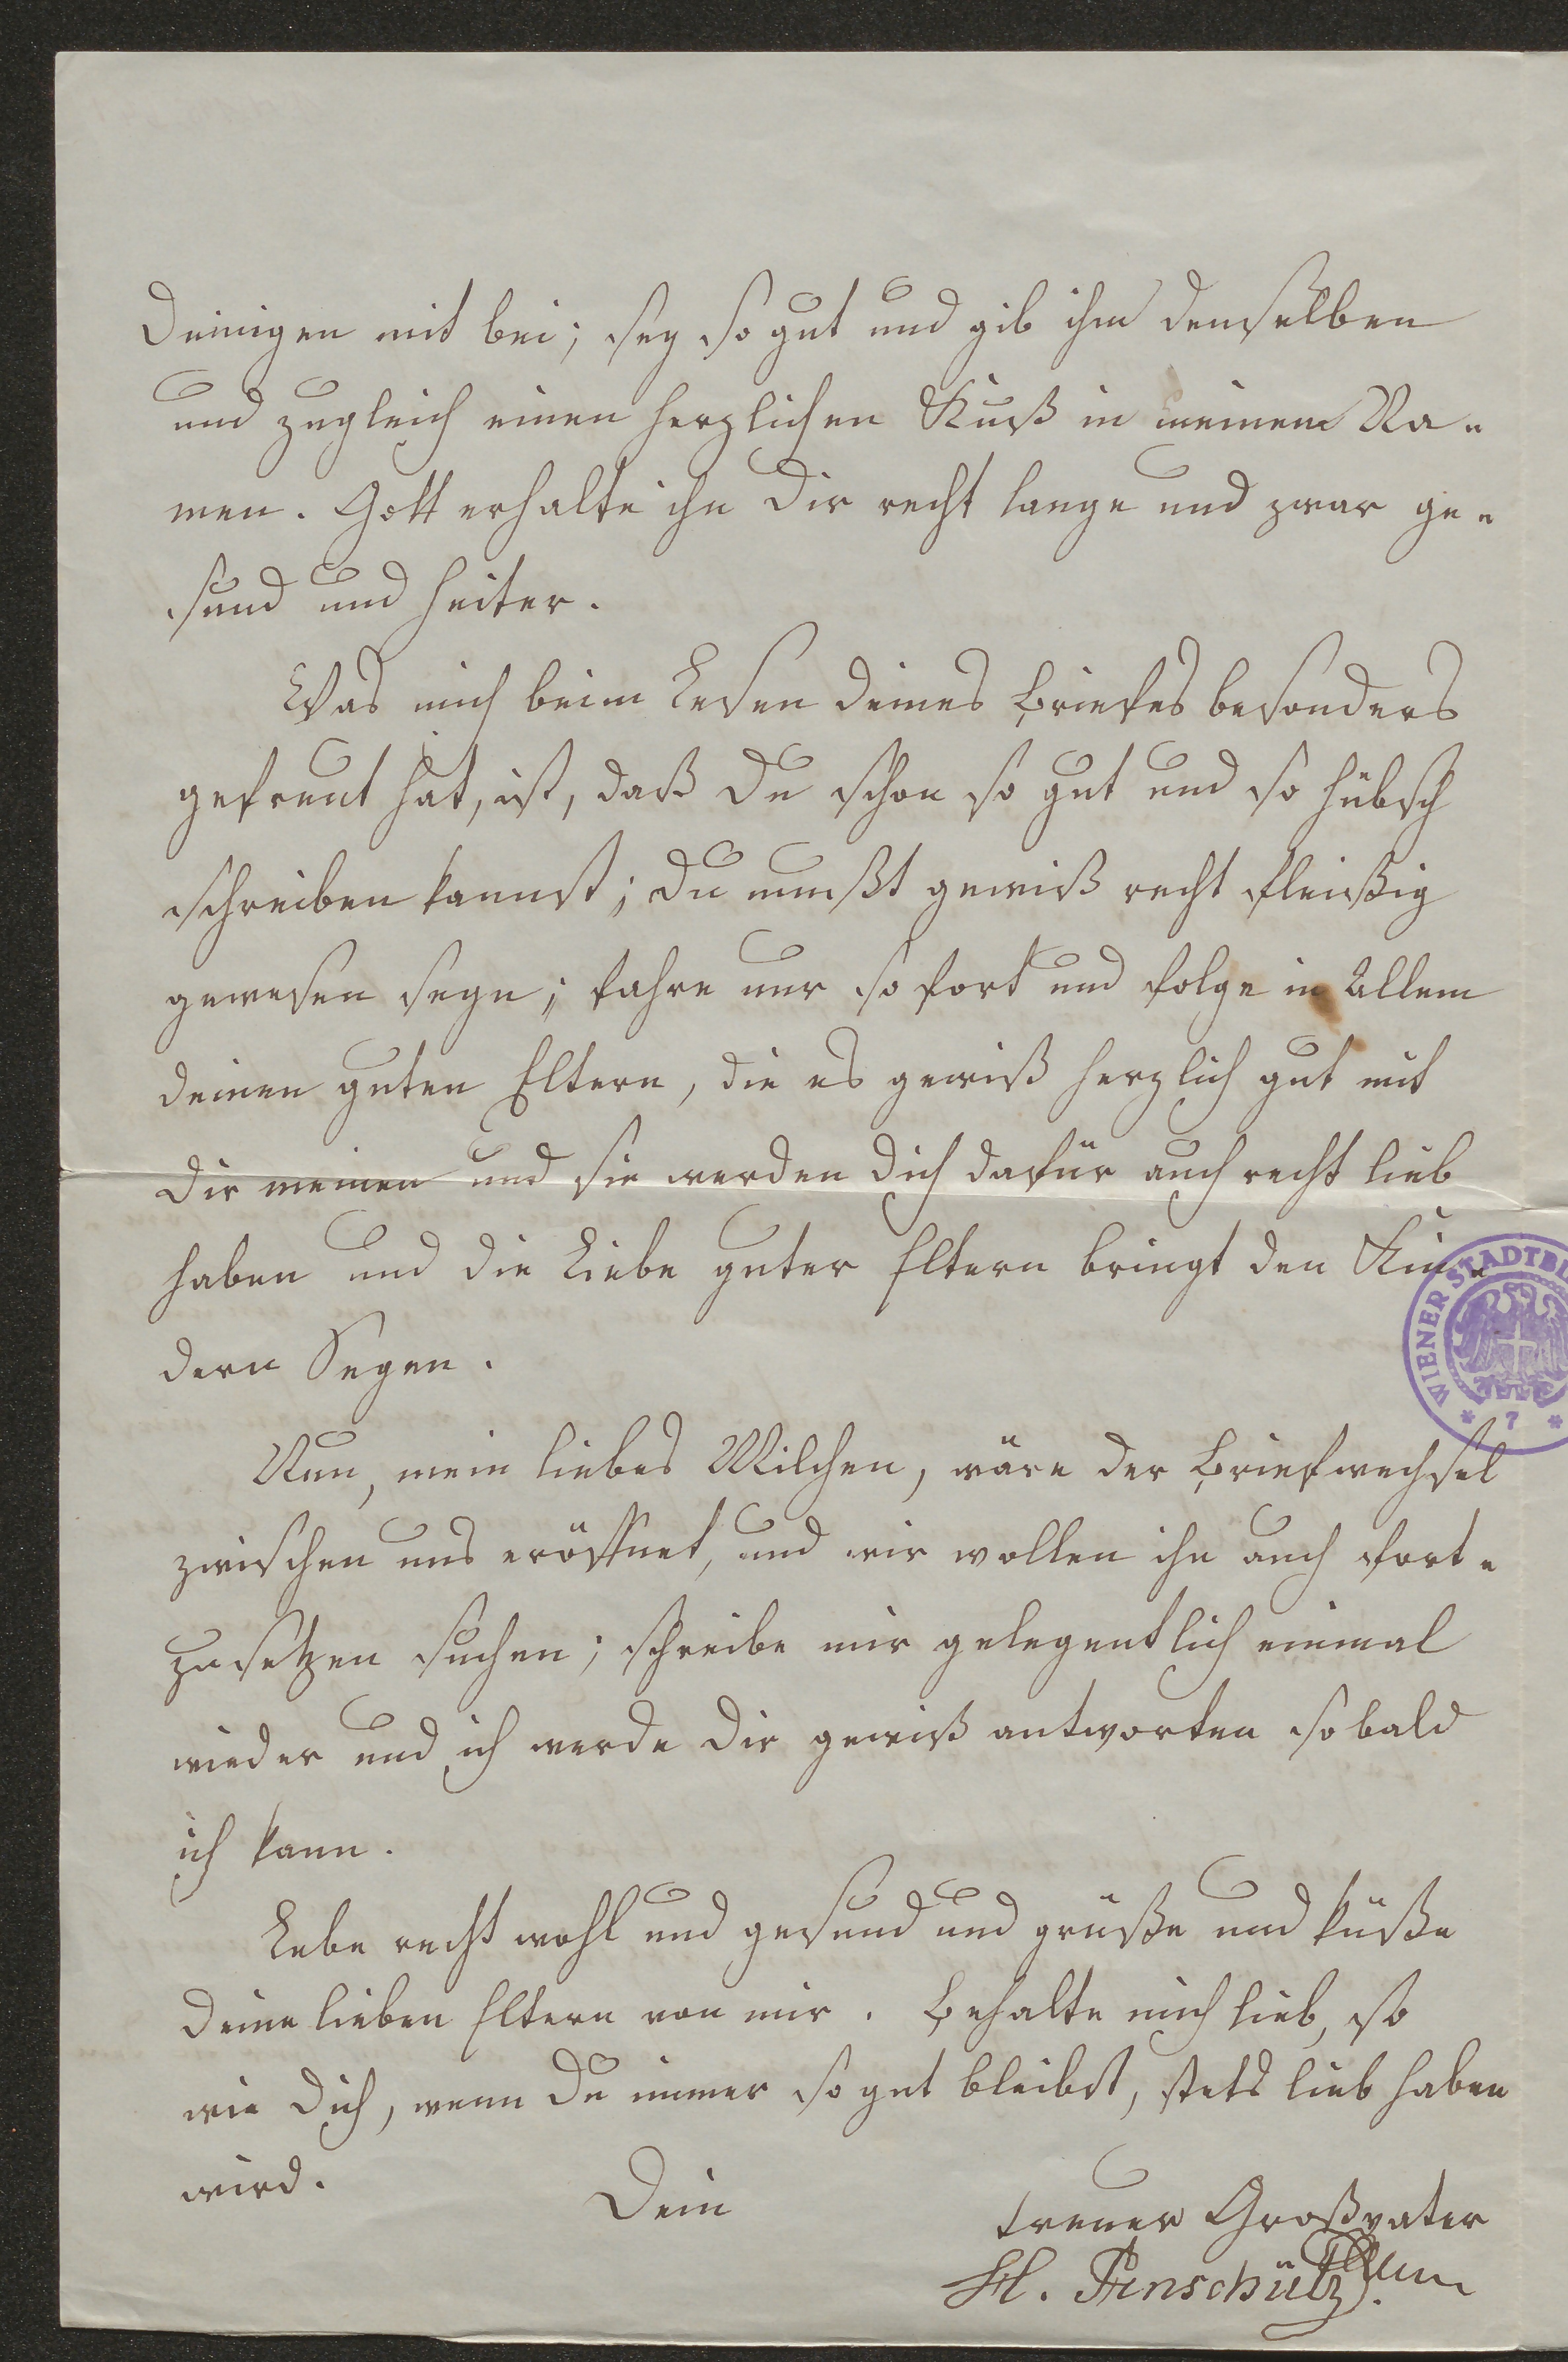 Deinigen mit bei; sey so gut und gib ihm denselben
und zugleich einen herzlichen Kuß in meinem Na-
men. Gott erhalte ihn Dir recht lange und zwar ge-
sund und heiter.
Was mich beim Lesen deines Briefes besonders
gefreut hat, ist, daß Du schon so gut und so hübsch
schreiben kannst; Du mußt gewiß recht fleißig
gewesen seyn; fahre nur so fort und folge in Allem
deinen guten Eltern, die es gewiß herzlich gut mit
Dir meinen und sie werden Dich dafür auch recht lieb
haben und die Liebe guter Eltern bringt den Kin-
dern Segen.
WIENER STADTBI
* 7 *
Nun, mein liebes Milchen, wäre der Briefwechsel
zwischen uns eröffnet, und wir wollen ihn auch fort-
zusetzen suchen; schreibe mir gelegentlich einmal
wieder und ich werde Dir gewiß antworten so bald
ich kann.
Lebe recht wohl und gesund und grüße und küße
Deine lieben Eltern von mir. Behalte mich lieb, so
wie Dich, wenn Du immer so gut bleibst, stets lieb haben
wird.
Dein
treuer Großvater
H. Anschütz